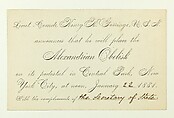 Lieut. Comdr. Henry H. Gorringe, U.S.N.
announces that he will place the
Alexandrian Obelisk
on its pedestal in Central Park, New
York City, at noon, January 22, 1881.
With the compliments of the Secretary of State.